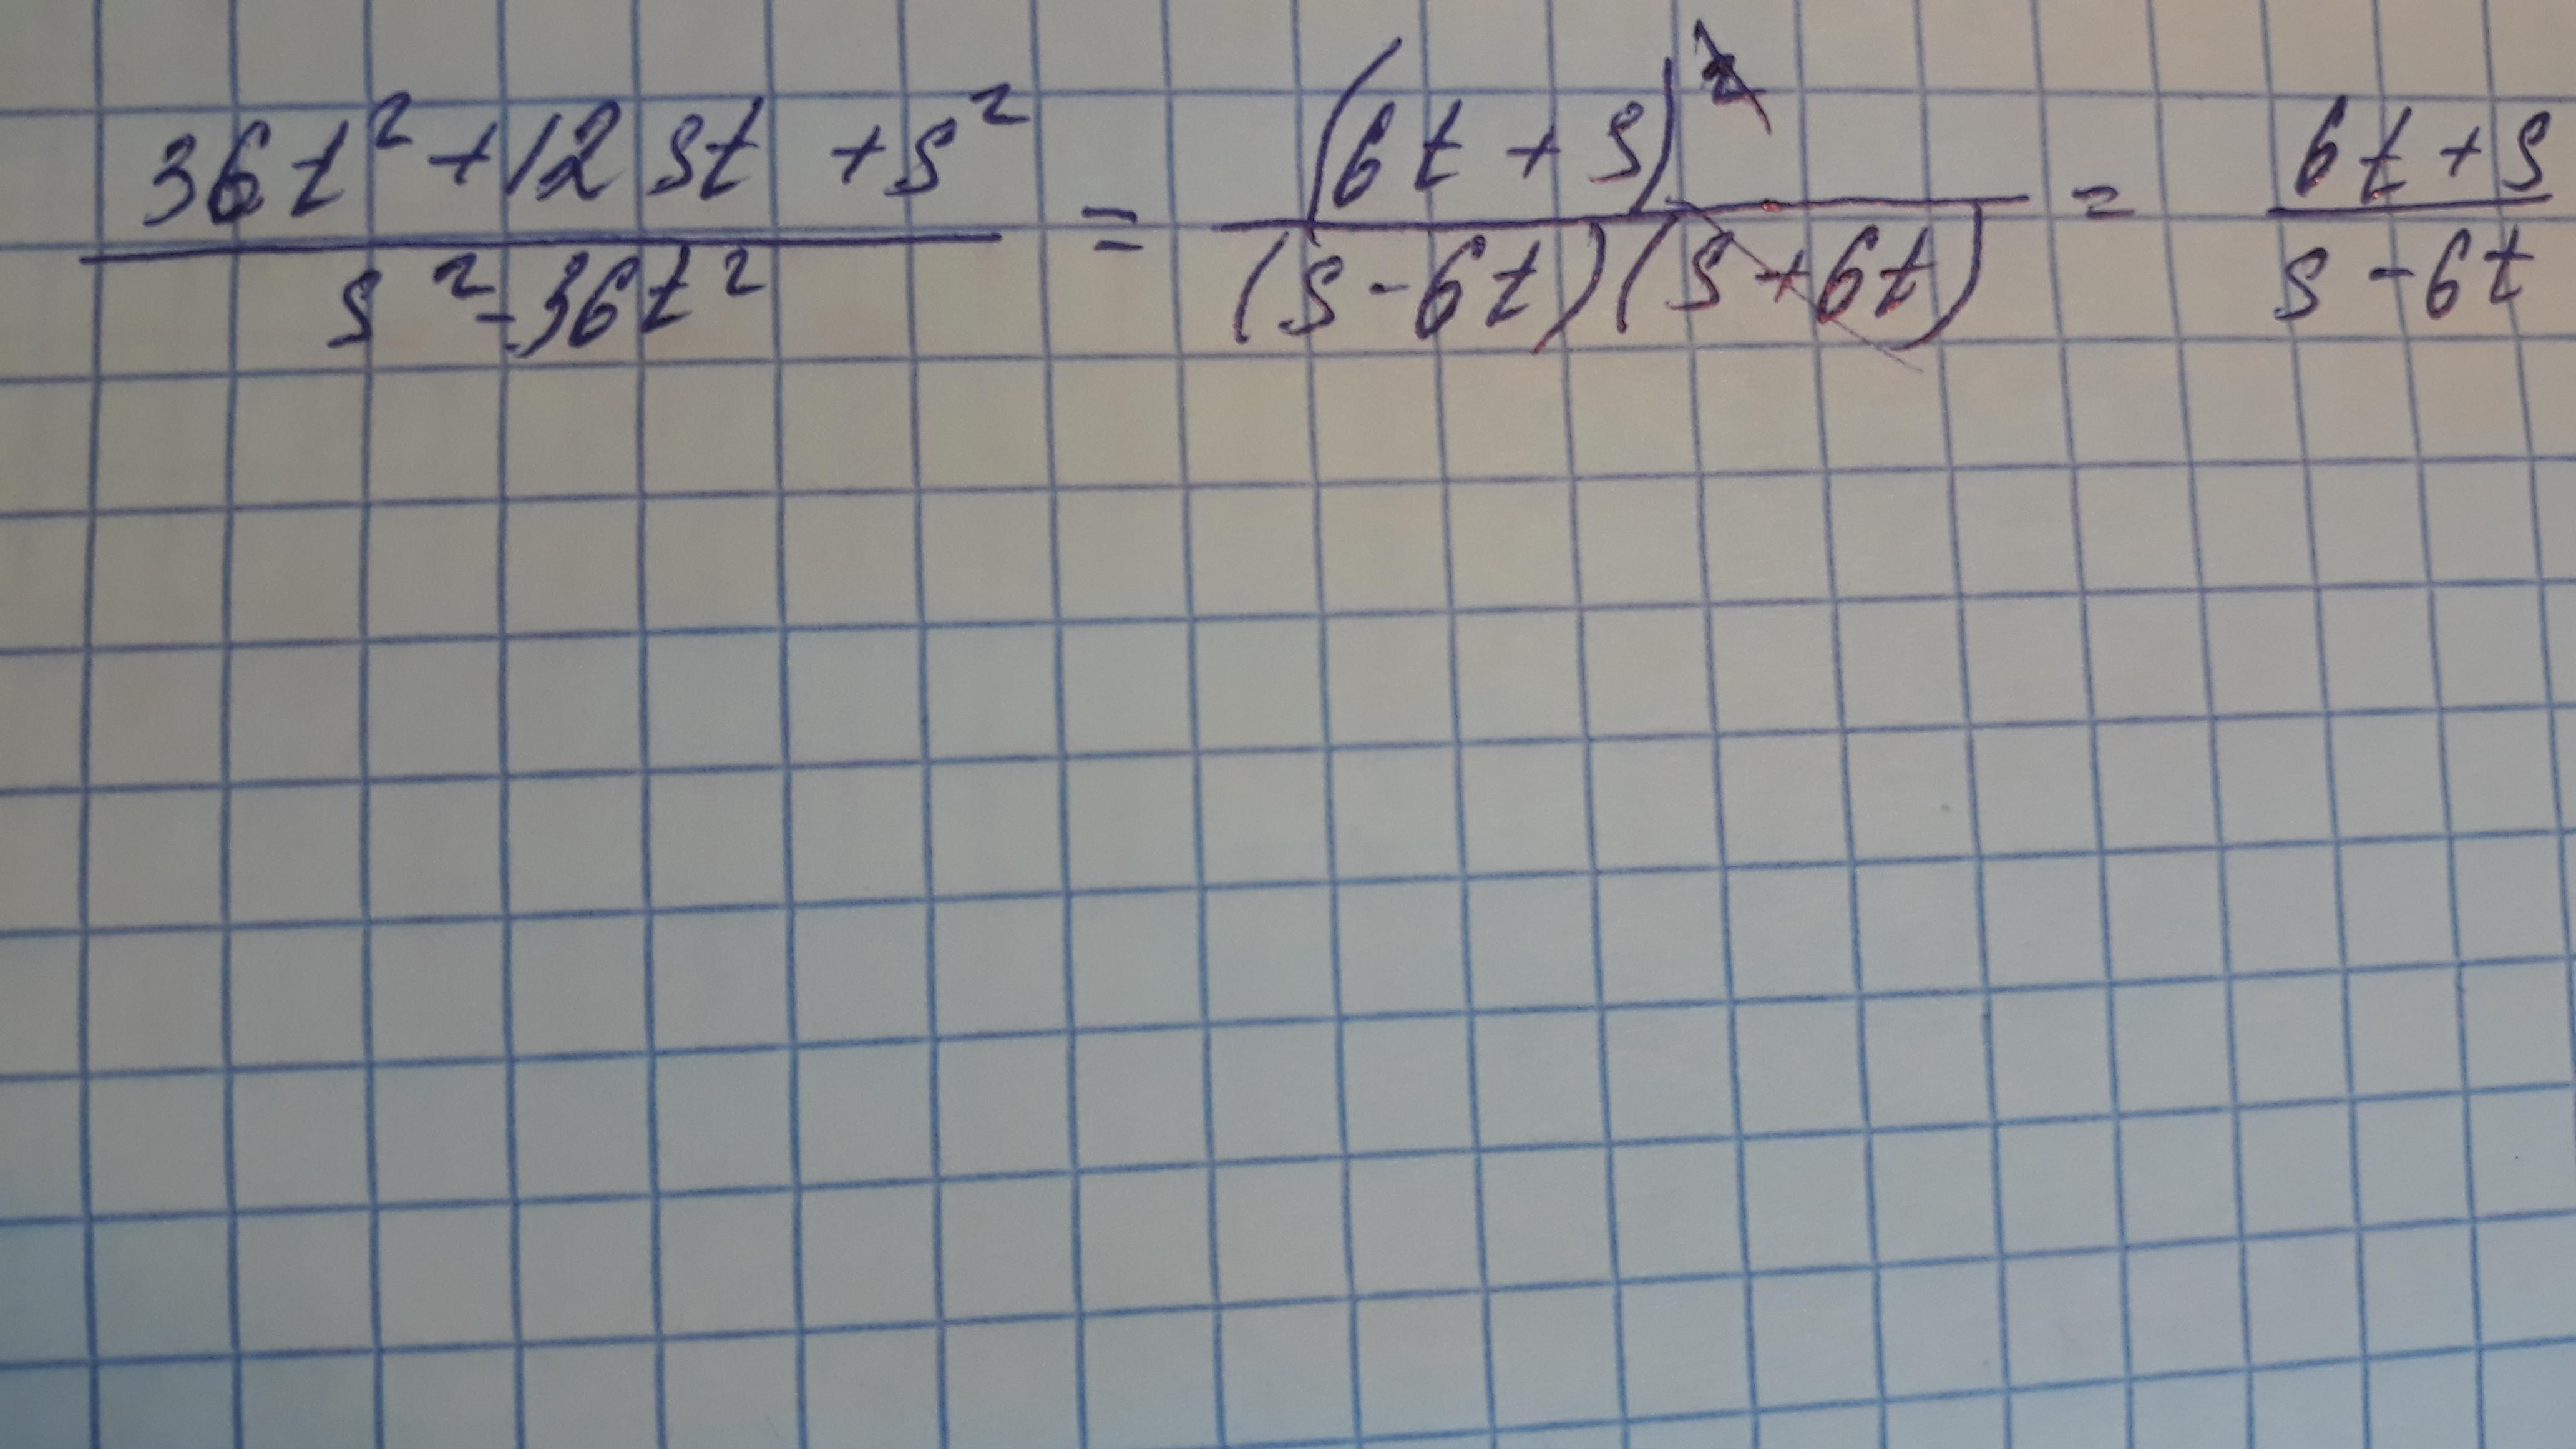 (36t² + 12st + s²)/(s² - 36t²) = (6t + s)²/((s - 6t)(s + 6t)) = (6t + s)/(s - 6t)